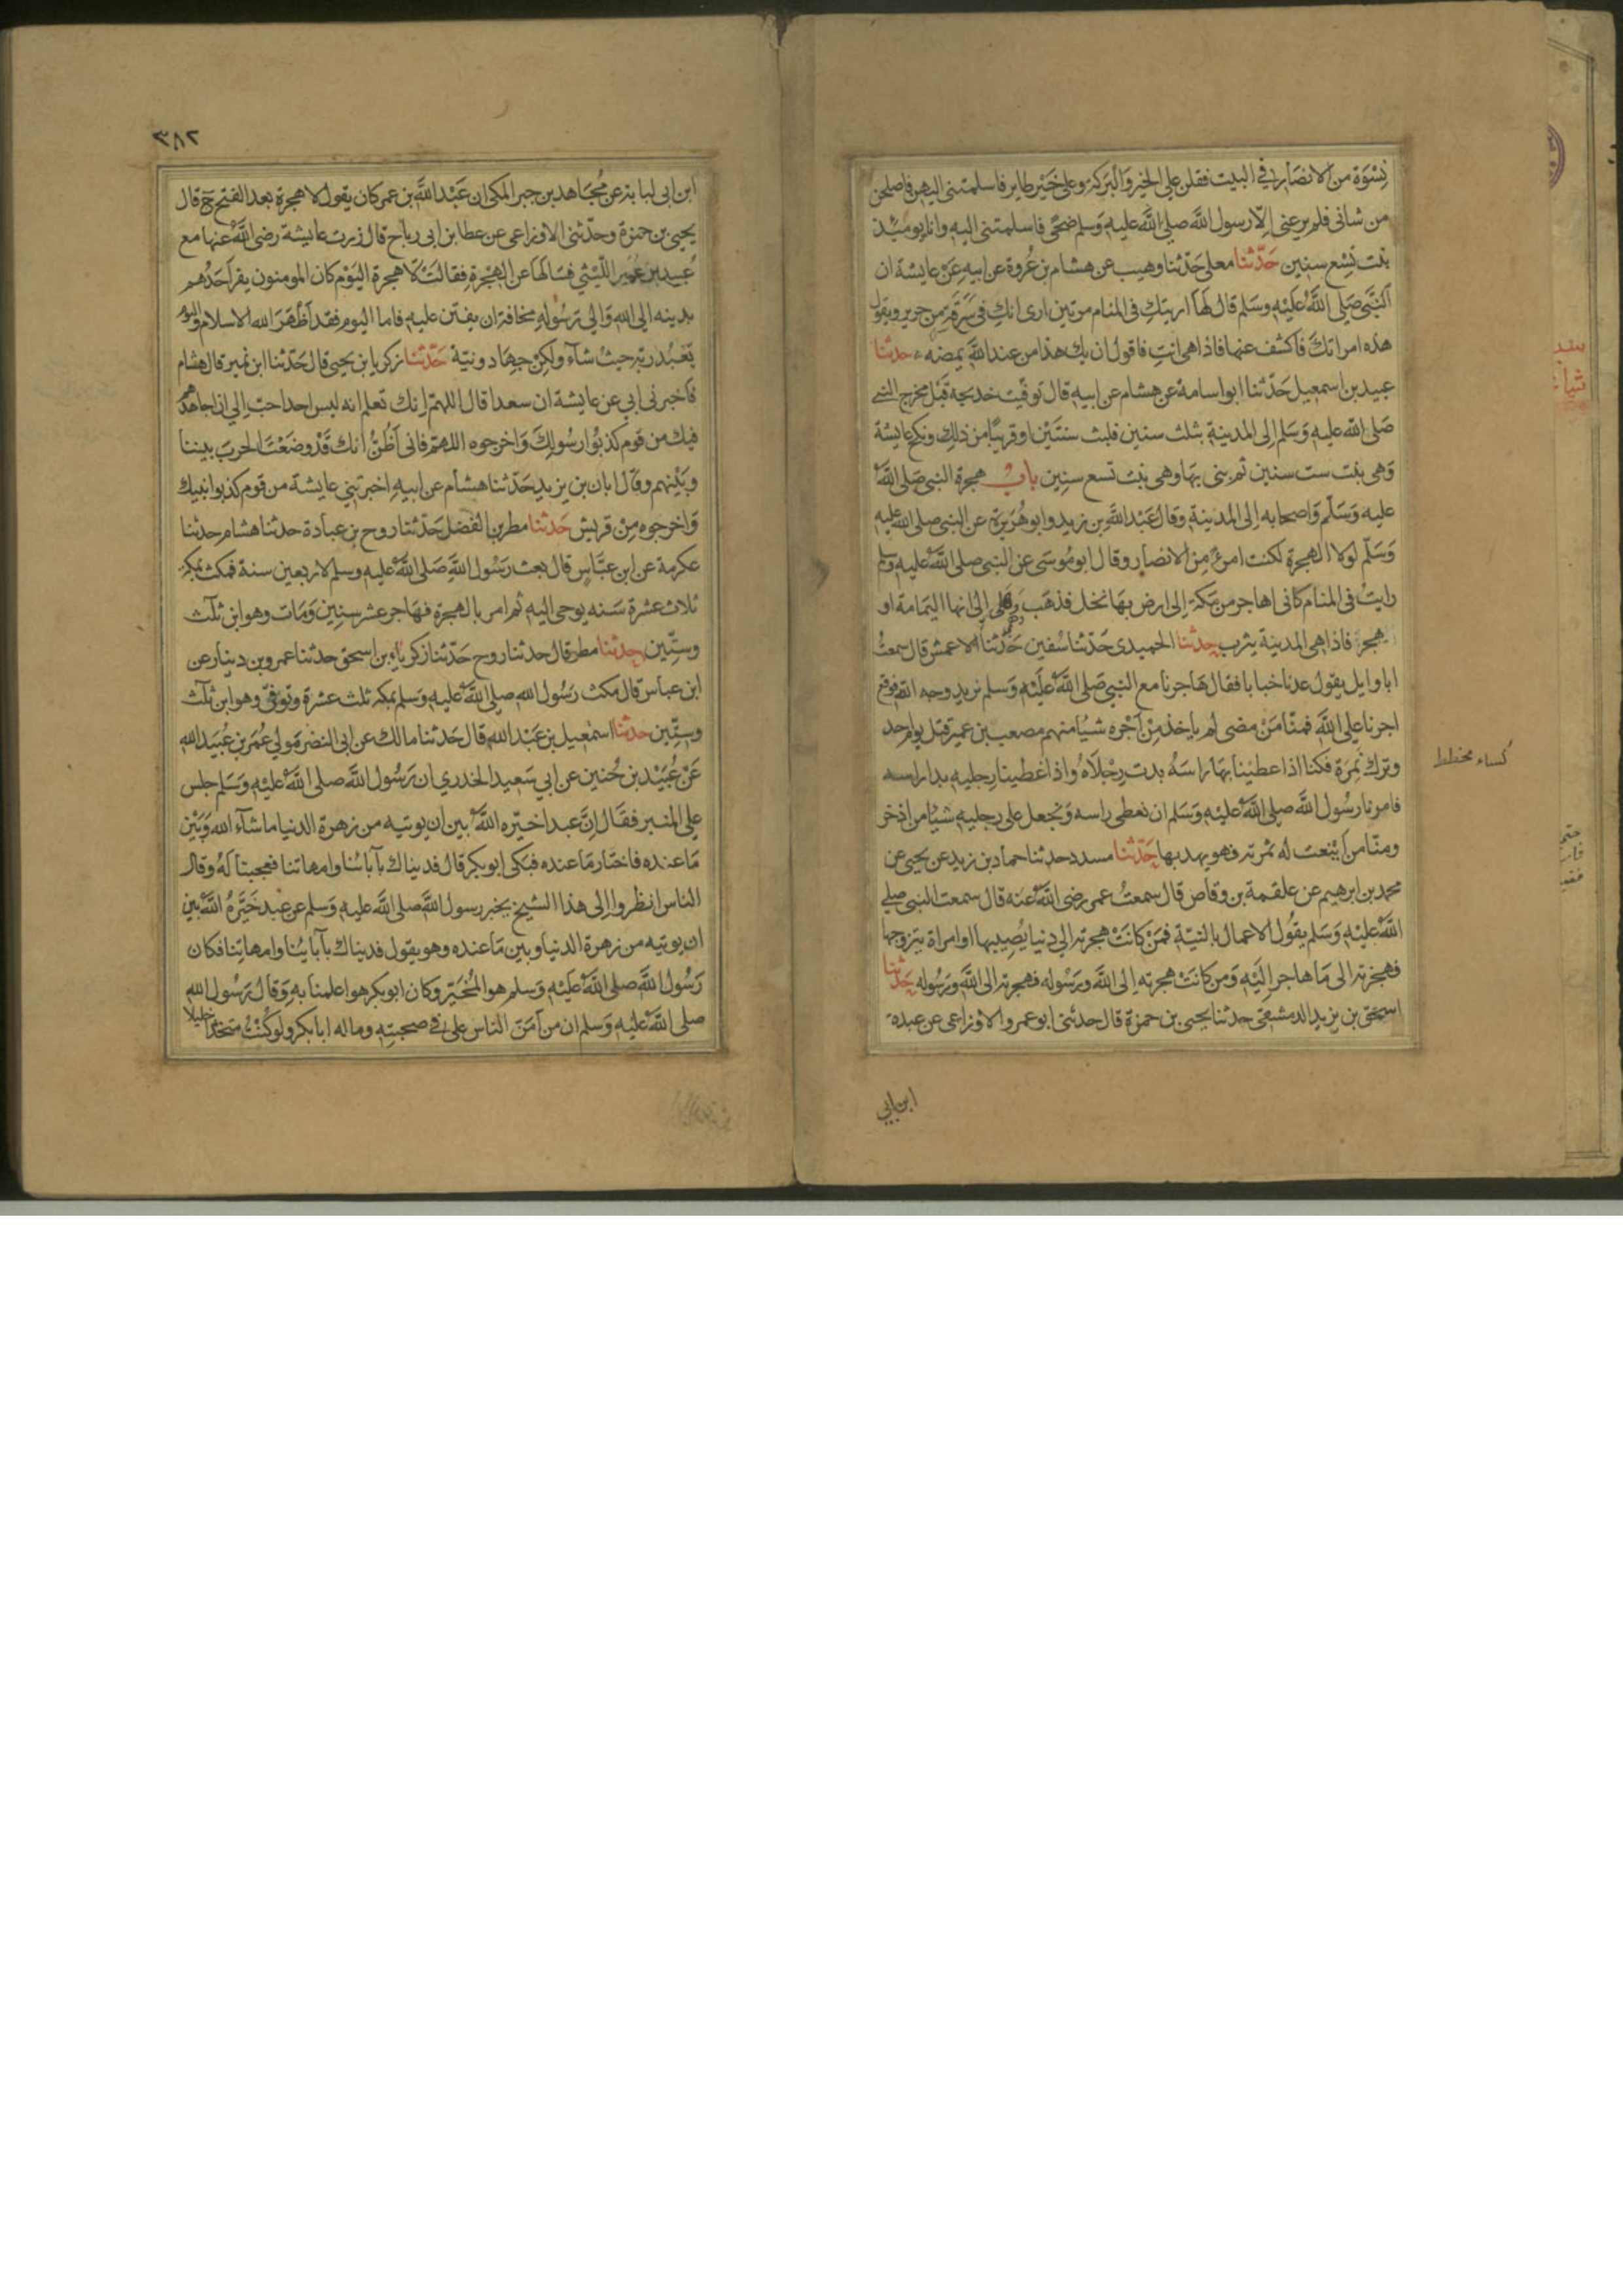 نِسْوَة من الانصَار في البيت فقلن علي الخير وَالْبَرَكة وعلى خَيْر طاير فاسلمتنى اليهن فاصلحن
من شانى فلم يرعنى الّا رسول اللّه صلى اللّه عليه وَسَلم ضحًى فاسلمتنى اليه وانا يوميئذ
بنت تِسْع سنين حَدّثنا معلى حَدّثنا وهيب عن هشام بن عُروة عن ابيه عَنْ عايشة ان
النَّبَّى صَلى اللَّه عَلَيْه وسَلم قال لهَا اريتكِ فى المنام مرتين ارى انكِ فى سَرَقَةٍ من حرير ويقول
هذه امراتكَ فاكشف عنها فاذا هى انتِ فاقول ان يك هذا من عند اللَّه يمضه حدثنا
عبيد بن اسمعيل حَدّثنا ابو اسامة عن هشام عن ابيه قال توفّيت خديجة قَبْل مخرج النبي
صَلى اللّه عليه وَسَلم اِلى المدينة بثلث سنين فلبث سنتَيْن او قريبًا من ذلِك ونكح عايشة
وَهى بنت ست سنين ثم بنى بهَا وهى بنت تسع سنِين باب هجرة النبى صَلى اللَّه
عليه وَسَلّم وَاصحابه اِلى المدينة وقال عَبْد اللَّه بن زيد وابو هُرَيرة عن النبى صلى اللّه عليه
وَسَلّم لولا الهجرة لكنت امرءًا مِنَ الانصار وقال ابو مُوسَى عن النبى صلى اللَّه عَليه وسلم
رايتُ فى المنام كانى اهاجر من مَكة اِلى ارض بهَا نخل فذهَب وَهَلى اِلى انها اليمَامة او
هجر فاذا هى المدينة يثرب حدثنا الحميدى حَدّثنا سُفين حَدّثنا الاعمش قال سمعتُ
ابا وايل يقول عدنا خبابا فقال هَاجرنا مع النبي صَلى اللَّه عَلَيْه وَسَلم نريد وجه اللّه فوقع
اجرنا على اللَّه فمنّا مَنْ مضى لم ياخذ مِنْ اَجْره شيًا منهم مصعب بن عمير قتل يوم احد
وترك نَمِرَة فكنا اذا عطينا بهَا راسَهُ بدت رِجْلَاهُ واذا غطينا رجليه بدا راسه
فامرنا رسُول اللَّه صلى اللَّه عَليْه وَسَلم ان نغطى راسه وَنجعل على رجليه شيًا من اذخر
ومنّا من اَيْنعت له ثمرته فهو يهدبها حَدّثنا مسدد حدثنا حماد بن زيد عن يحيى عن
محمد بن ابرهيم عن علقمة بن وقاص قال سمعتُ عمر رضى اللَّه عنه قال سمعت النبى صلى
اللَّه عَليْه وَسَلم يقُول الاعمال بالنيّة فمَنْ كانَتْ هجرته الى دنيا يُصِيبها او امراة يتزوجها
فهجرته الى مَا هاجر اليَه وَمن كانَتْ هجرته اِلى اللَّه ورَسُوله فهجرته الى اللَّه ورَسُوله حَدّثنا
اسحق بن يزيد الدمشقى حدثنا يحيى بن حمزة قال حدثنى ابو عمرو الاوزاعى عن عبدة
ابن ابي
كساء مخطط
٣٨٢
ابن ابى لبابة عن مُجَاهد بن جبر المكى ان عَبْد اللَّه بن عمر كان يقول لا هجرة بعد الفتح ح قال
يحيى بن حمزة وحدّثنى الاوزاعى عن عطا بن ابى رباح قال زرت عايشة رضى اللَّه عنها مع
عُبيد بن عُمير اللّيْثي فسَالهَا عن الهِجْرة فقالتْ لَا هجرة اليَوْم كان المومنون يفر اَحَدُهم
بدينه الى اللّه وَالى رَسُوله مخافة ان يفتن عليه فاما اليوم فقد اَظْهَرَ اللّه الاسلام واليوم
يَعْبُد ربَّه حيثُ شآءَ ولكِنْ جهَاد ونيّة حَدّثنا زكريا بن يحيى قال حَدّثنا ابن نمير قال هشام
فاخبرنى ابى عن عايشة ان سعدا قال اللهمّ اِنك تعلم انه ليس احد احبّ اِلى ان اجاهدهم
فيك من قوم كذبُوا رسُولكَ وَاخرجوه اللهمّ فانى اَظُنُّ انك قَدْ وضَعْتَ الحربَ بيننا
وبَيْنهم وقال ابان بن يزيد حَدّثنا هشام عن ابيه اخبرتني عايشة من قوم كذبوا نبيك
وَاخرجوه مِنْ قريش حَدثنا مطر بن الفضل حَدّثنا روح بن عبادة حدثنا هشام حدثنا
عكرمة عن ابن عبَّاس قال بعث رَسُول اللَّه صَلى اللَّه عليه وسلم لاربعين سنة فمكث بمكة
ثلاث عشرة سَنه يوحى اليه ثم امر بالهجرة فهَاجر عشر سنِين وَمَات وهو ابن ثلث
وستِّين حدثنا مطر قال حدثنا روح حَدّثنا زكرياء بن اسحق حدثنا عمرو بن دينار عن
ابن عباس قال مكث رَسُول اللّه صلى اللَّه عليه وَسَلم بمكه ثلث عشرة وتوفّى وهو ابن ثلث
وستّين حدثنا اسْمعيل بن عَبْد اللّه قال حَدثنا مالك عن ابى النضر مَولي عُمَر بن عُبَيد اللّه
عَنْ عُبَيْد بن حُنين عن ابى سَعيد الخدري ان رَسُول اللَّه صلى اللَّه عَليْه وَسَلم جلس
على المنبر فقَال اِنَّ عبدا خيّره اللَّه بين ان يوتيه من زهرة الدنيا ما شآءَ اللّه وَبَيْن
مَا عنده فاختار مَا عنده فبَكى ابو بكر قال فديناك بآبائنا وامهاتنا فعجبنا لَهُ وقال
الناس انظروا اِلى هذا الشيخ يخبر رسول اللَّه صلى اللَّه عليه وَسَلم عن عبد خَيَّرهُ اللَّه بين
ان يوتيه من زهرة الدنيا وبين مَا عنده وهو يقول فديناك بآبايُنا وامهاتِنا فكان
رَسُول اللَّه صلى اللَّه عَلَيْه وَسلم هو المُخيَّر وكان ابو بكر هو اعلمنا به وَقال رَسُول اللّه
صلى اللَّه عَليه وَسلم ان من اَمَنّ الناس علىّ في صحبتِه وماله ابا بكر ولو كُنتُ متخذا خليلا